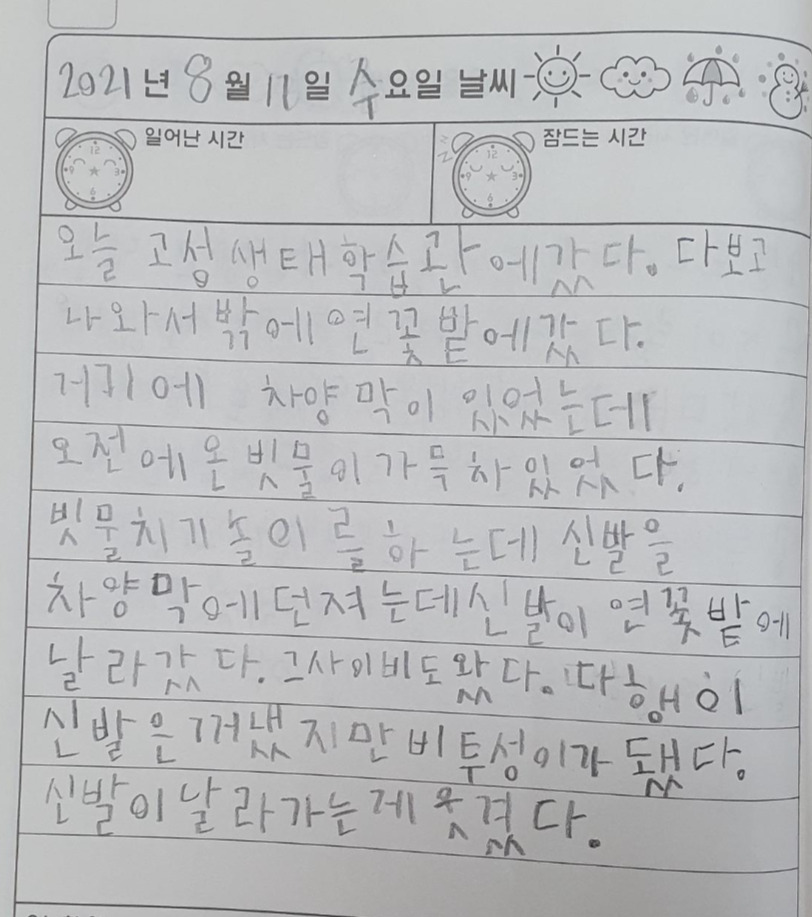 2021년 8월 11일 수요일 날씨
일어난 시간 잠드는 시간
오늘 고성 생태학습관에갔다. 다보고
나와서 밖에 연꽃밭에갔다.
거기에 차양막이 있었는데
오전에 온 빗물이가득차있었다.
빗물치기놀이를하는데 신발을
차양막에던져는데신발이 연꽃밭에
날라갔다. 그사이비도왔다. 다행이
신발은꺼냈지만비투성이가됐다.
신발이날라가는게웃겼다.